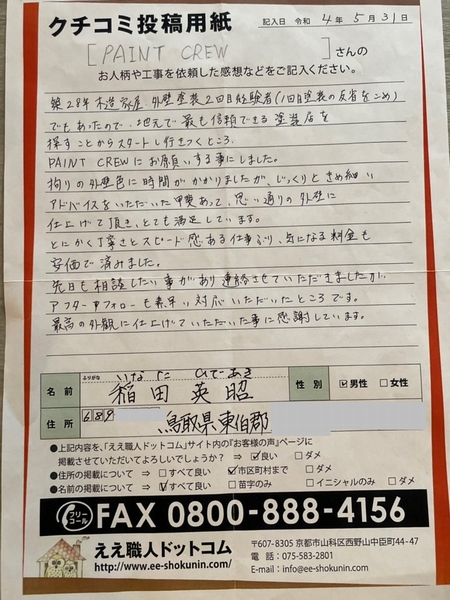 クチコミ投稿用紙
記入日 令和 4年 5月 31日
[PAINT CREW ]さんの
お人柄や工事を依頼した感想などをご記入ください。
築28年 木造家屋 外壁塗装2回目経験者(1回目塗装の反省をこめ)
でもあったので、地元で最も信頼できる塗装店を
探すことからスタートし行きつくところ、
PAINT CREWにお願いする事にしました。
拘りの外壁色に時間がかかりましたが、じっくりときめ細い
アドバイスをいただいた甲斐あって、思い通りの外壁に
仕上げて頂き、とても満足しています。
とにかく丁寧さとスピード感ある仕事ぶり、気になる料金も
安価で済みました。
先日も相談したい事があり連絡させていただきましたが、
アフターフォローも素早い対応いただいたところです。
最高の外観に仕上げていただいた事に感謝しています。
ふりがな いなだ ひであき
名前 稲田 英昭 性別 ☑男性 □女性
住所 689 鳥取県東伯郡
●上記内容を、「ええ職人ドットコム」サイト内の『お客様の声』ページに
掲載させていただいてよろしいでしょうか? ⇒ ☑良い □ダメ
●住所の掲載について ⇒ □すべて良い ☑市区町村まで □ダメ
●名前の掲載について ⇒ ☑すべて良い □苗字のみ □イニシャルのみ □ダメ
フリーコール FAX 0800-888-4156
ええ職人ドットコム
http://www.ee-shokunin.com/
〒607-8305 京都市山科区西野山中臣町44-47
電話:075-583-2801
E-mail:info@ee-shokunin.com